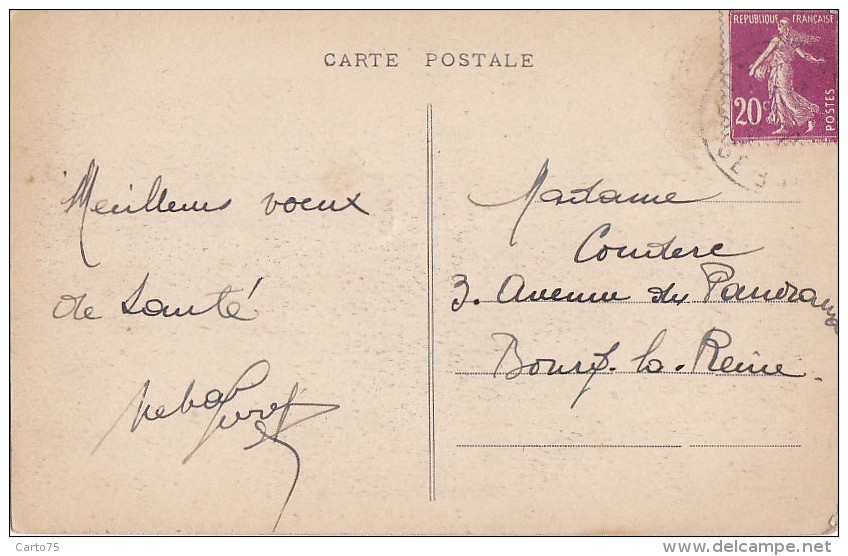 CARTE POSTALE
REPUBLIQUE FRANÇAISE
20c
POSTES
Meilleurs voeux
de Santé
Madame
Couderc
3. Avenue du Panorama
Bourg-la-Reine.
Carto75
www.delcampe.net